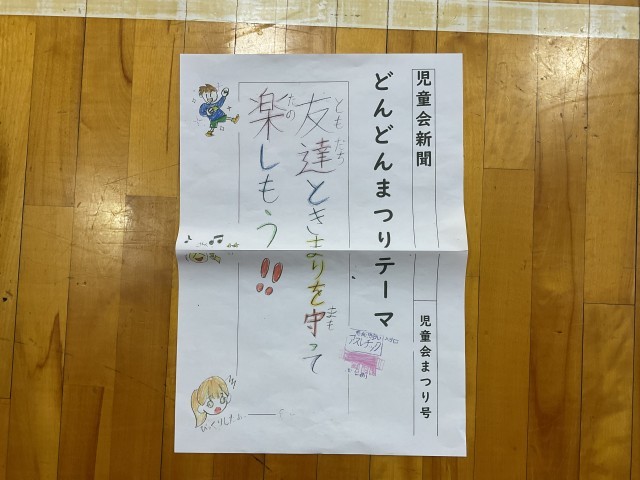 児童会新聞
児童会まつり号
どんどんまつりテーマ
友達ときまりを守って
とも だち
まも
楽しもう!!
たの
アスレチック